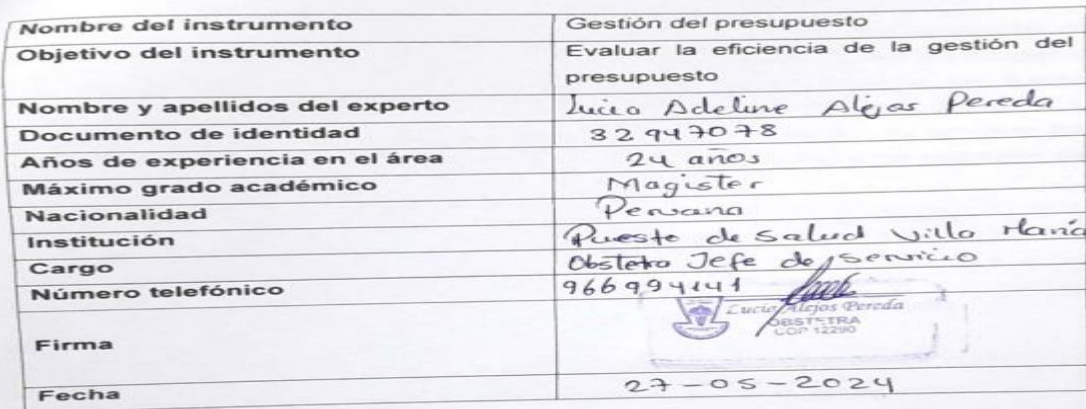 Nombre del instrumento Gestión del presupuesto
Objetivo del instrumento Evaluar la eficiencia de la gestión del
presupuesto
Nombre y apellidos del experto Lucia Adeline Alejos Pereda
Documento de identidad 32947078
Años de experiencia en el área 24 años
Máximo grado académico Magister
Nacionalidad Peruana
Institución Puesto de Salud Villa María
Cargo Obstetra Jefe de Servicio
Número telefónico 966994141
Lucia Alejos Pereda
OBSTETRA
COP 12290
Firma
Fecha 27-05-2024